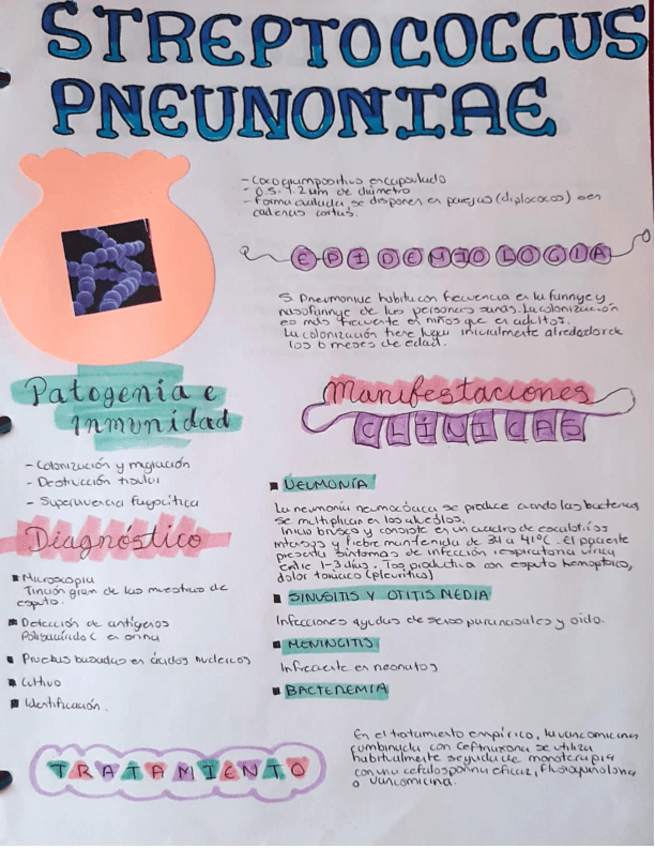 STREPTOCOCCUS
PNEUNONIAE
- Coco grampositivo encapsulado
- 0.5-1.2 um de diámetro
- Forma ovalada, se disponen en parejas (diplococos) o en
cadenas cortas.
EPIDEMIOLOGIA
S Pneumoniae habita con frecuencia en la
nasofaringe de las personas sanas. La colonización
es más frecuente en niños que en adultos.
La colonización tiene lugar inicialmente alrededor de
los 6 meses de edad.
Patogenia e
Inmunidad
- Colonización y migración
- Destrucción tisular
- Supervivencia fagocítica
Manifestaciones
CLÍNICAS
NEUMONÍA
La neumonía neumocócica se produce cuando las bacterias
se multiplican en los alveolos.
Inicio brusco y consiste en un cuadro de escalofríos
intensos y fiebre mantenida de 39 a 41°C. El paciente
presenta síntomas de infección respiratoria vírica
entre 1-3 días. Tos productiva con esputo hemoptoico,
dolor torácico (pleurítico)
SINUSITIS Y OTITIS MEDIA
Infecciones agudas de senos paranasales y oído.
MENINGITIS
Infrecuente en neonatos
BACTENEMIA
Diagnóstico
Microscopia
Tinción gram de las muestras de
esputo.
Detección de antígenos
Polisacárido C en orina
Pruebas basadas en ácidos nucleicos
Cultivo
Identificación.
TRATAMIENTO
En el tratamiento empírico, la vancomicina
combinada con Ceftriaxona se utiliza
habitualmente seguida de monoterapia
con una cefalosporina eficaz, fluoroquinolona
o vancomicina.